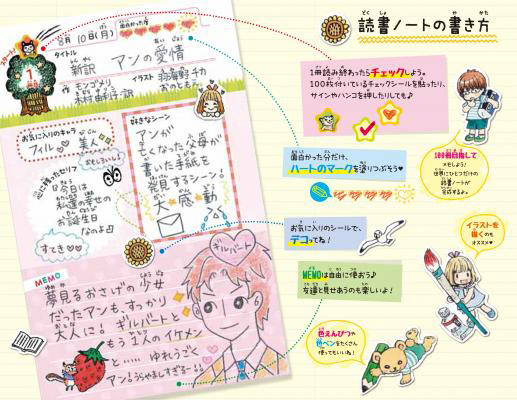 スタート!
1
8月10日(月)
面白かった度
タイトル
新訳 アンの愛情
作 モンゴメリ
木村由利子 訳
イラスト 羽海野チカ
おのともえ
お気に入りのキャラ
フィル
美人
おもしろいし!
心に残ったセリフ
今日は
私達の幸せの
お誕生日
なのよ
すてき
好きなシーン
アンが
亡くなった父母が
書いた手紙を
発見するシーン。
大感動
MEMO
ギルバート
夢見るおさげの少女
だったアンも、すっかり
大人に! ギルバートと
もう1人のイケメン
と…… ゆれうごく
アン!うらやましすぎるー!!
読書ノートの書き方
1冊読み終わったらチェックしよう。
100枚付いているチェックシールを貼ったり、
サインやハンコを押したりしても♪
面白かった分だけ、
ハートのマークを塗りつぶそう♥
お気に入りのシールで、
デコってね!
MEMOは自由に使おう♪
友達と見せあうのも楽しいよ!
100冊目指して
メモしよう!
世界にひとつだけの
読書ノートが
完成するよ。
イラストを
描くのも
オススメ♥
色えんぴつや
色ペンをたくさん
使ってもいいね!